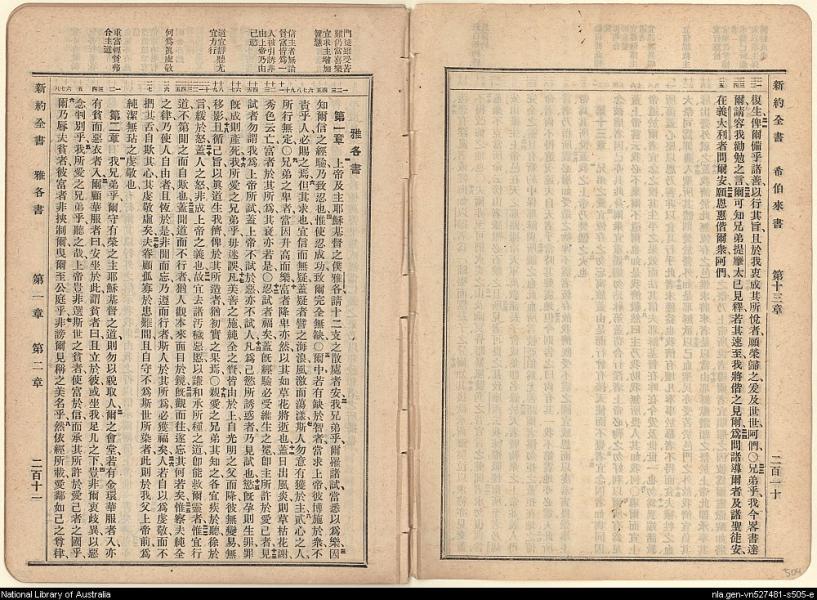 復生俾爾備乎諸善以行其旨且於我衷成其所悅者願榮歸之爰及世世阿們〇兄弟乎我今畧書達
爾請容我勸勉之言爾可知兄弟提摩太已見釋若其速至我將偕之見爾爲問諸導爾者及諸聖徒安
在義大利者問爾安願恩惠偕爾衆阿們
新約全書 希伯來書 第十三章 二百一十
門徒雖受苦
難仍當喜樂
宜求主增加
智慧
信主者無論
貧富皆爲一
人被引誘非
由上帝乃由
己慾
道宜靜聽尤
宜力行
何爲眞虔敬
重富輕貧弗
合主道
雅各書
第一章 上帝及主耶穌基督之僕雅各請十二支之散處者安我兄弟乎爾罹諸試當悉以爲樂因
知爾信之經驗乃致忍也惟使忍成功致爾完全無缺〇爾中若有缺於智者當求上帝彼博施於衆不
責乎人必賜之焉但其求也宜信而無疑蓋疑者譬之海浪風激而蕩漾斯人勿意有獲於主貳心之人
所行無定〇兄弟之卑者當因升高而樂富者降卑亦然以其如草花將逝也蓋日出風炎則草枯花謝
秀色云亡富者於其所爲其衰亦若是〇忍試者福矣蓋旣經驗必受維生之冕卽主所許於愛己者見
試者勿謂我爲上帝所試蓋上帝不試於惡亦不試人凡爲己慾所誘惑者乃見試也慾旣孕則生罪罪
旣成則產死我所愛之兄弟乎毋迷誤凡美善之施純全之賚皆由於上自光明之父而降彼無變易無
移影且循己旨以眞道生我儕俾於其所造者猶初實之果焉〇親愛之兄弟其知之各宜疾於聽徐於
言緩於怒蓋人之怒非成上帝之義也故宜去諸汚穢惡慝以謙和承所種之道卽能救爾靈者惟宜行
道不第聞之而自欺也蓋聞道而不行者猶人觀本來面目於鏡旣觀而往遂忘其何若矣惟察夫純全
之律乃使人自由者且恆於是非聞而忘乃遵而行者斯人於其所爲必獲福矣人若自以爲虔敬而不
捫其舌自欺其心其虔敬虛矣夫眷顧孤寡於患難間且自守不爲斯世所染者此則於我父上帝前爲
純潔無玷之虔敬也
第二章 我兄弟乎爾守有榮之主耶穌基督之道則勿以貌取人爾之會堂若有金環華服者入亦
有貧而惡衣者入爾顧華服者曰安坐於此謂貧者曰且立於彼或坐我足几之下豈非爾衷歧異以惡
念判別乎我所愛之兄弟乎聽之哉上帝豈非選斯世之貧者使富於信而承其所許於愛己者之國乎
爾乃辱夫貧者彼富者非挾制爾曳爾至公庭乎非謗爾見稱之美名乎然依經所載愛鄰如己之尊律
新約全書 雅各書 第一章 第二章 二百十一
504
National Library of Australia
nla.gen-vn527481-s505-e